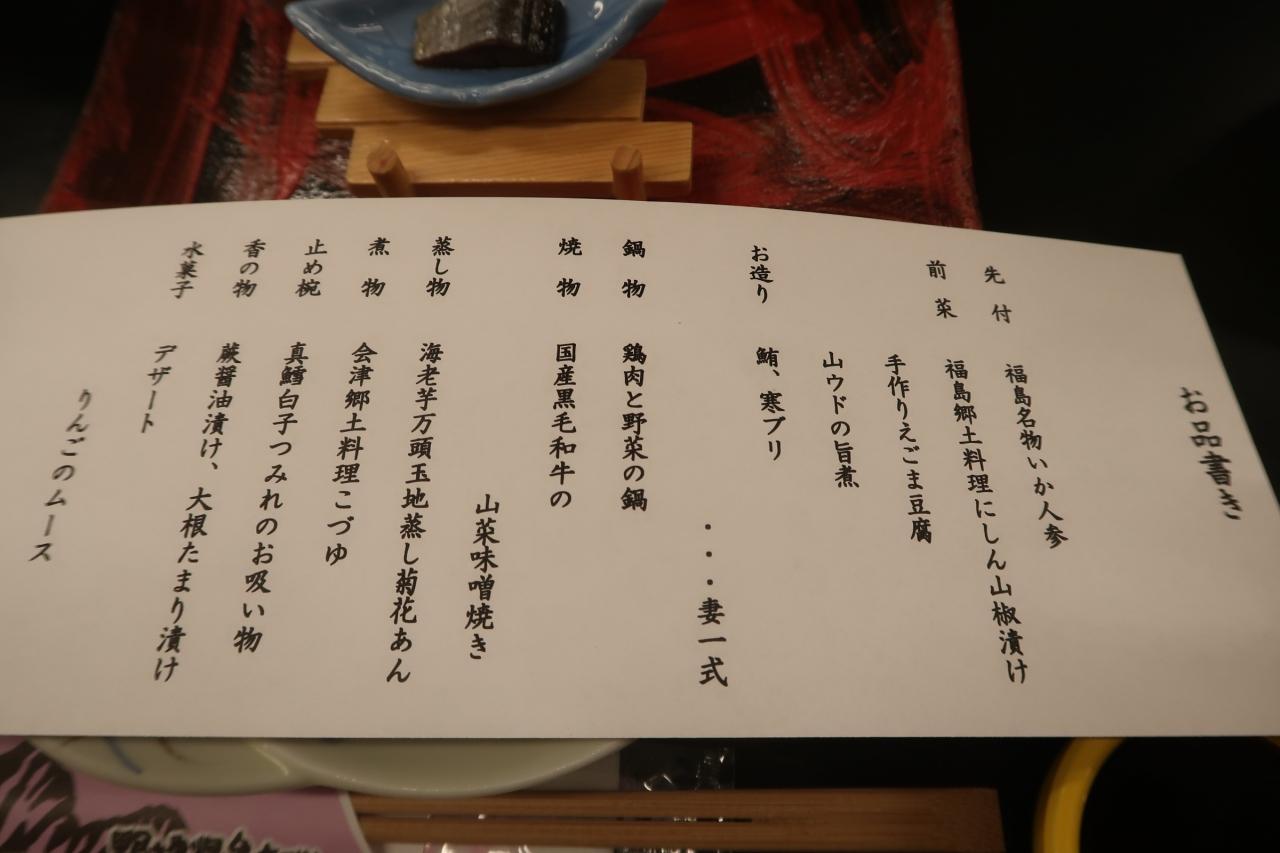 お品書き
先付 福島名物いか人参
前菜 福島郷土料理にしん山椒漬け
手作りえごま豆腐
山ウドの旨煮
お造り 鮪、寒ブリ
・・・妻一式
鍋物 鶏肉と野菜の鍋
焼物 国産黒毛和牛の
山菜味噌焼き
蒸し物 海老芋万頭玉地蒸し菊花あん
煮物 会津郷土料理こづゆ
止め椀 真鱈白子つみれのお吸い物
香の物 蕨醤油漬け、大根たまり漬け
水菓子 デザート
りんごのムース